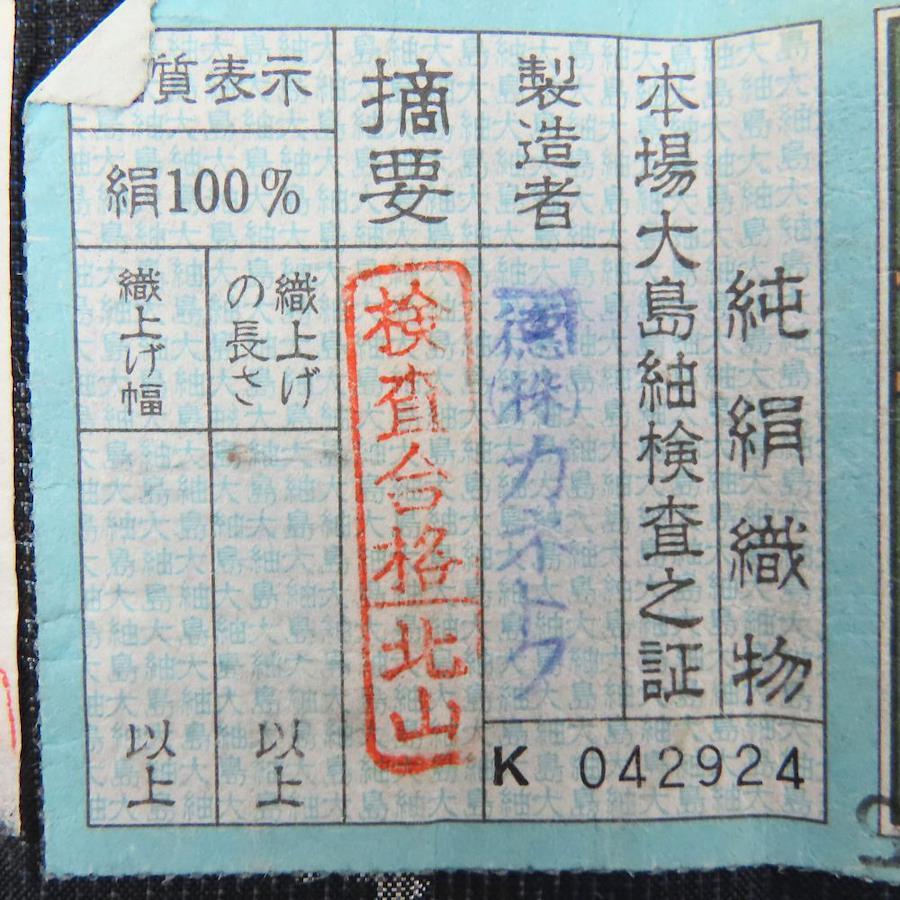 純絹織物
本場大島紬検査之証
製造者
徳(株)カネトク
K 042924
摘要
検査合格
北山
質表示
絹100%
織上げ
の長さ
以上
織上げ幅
以上